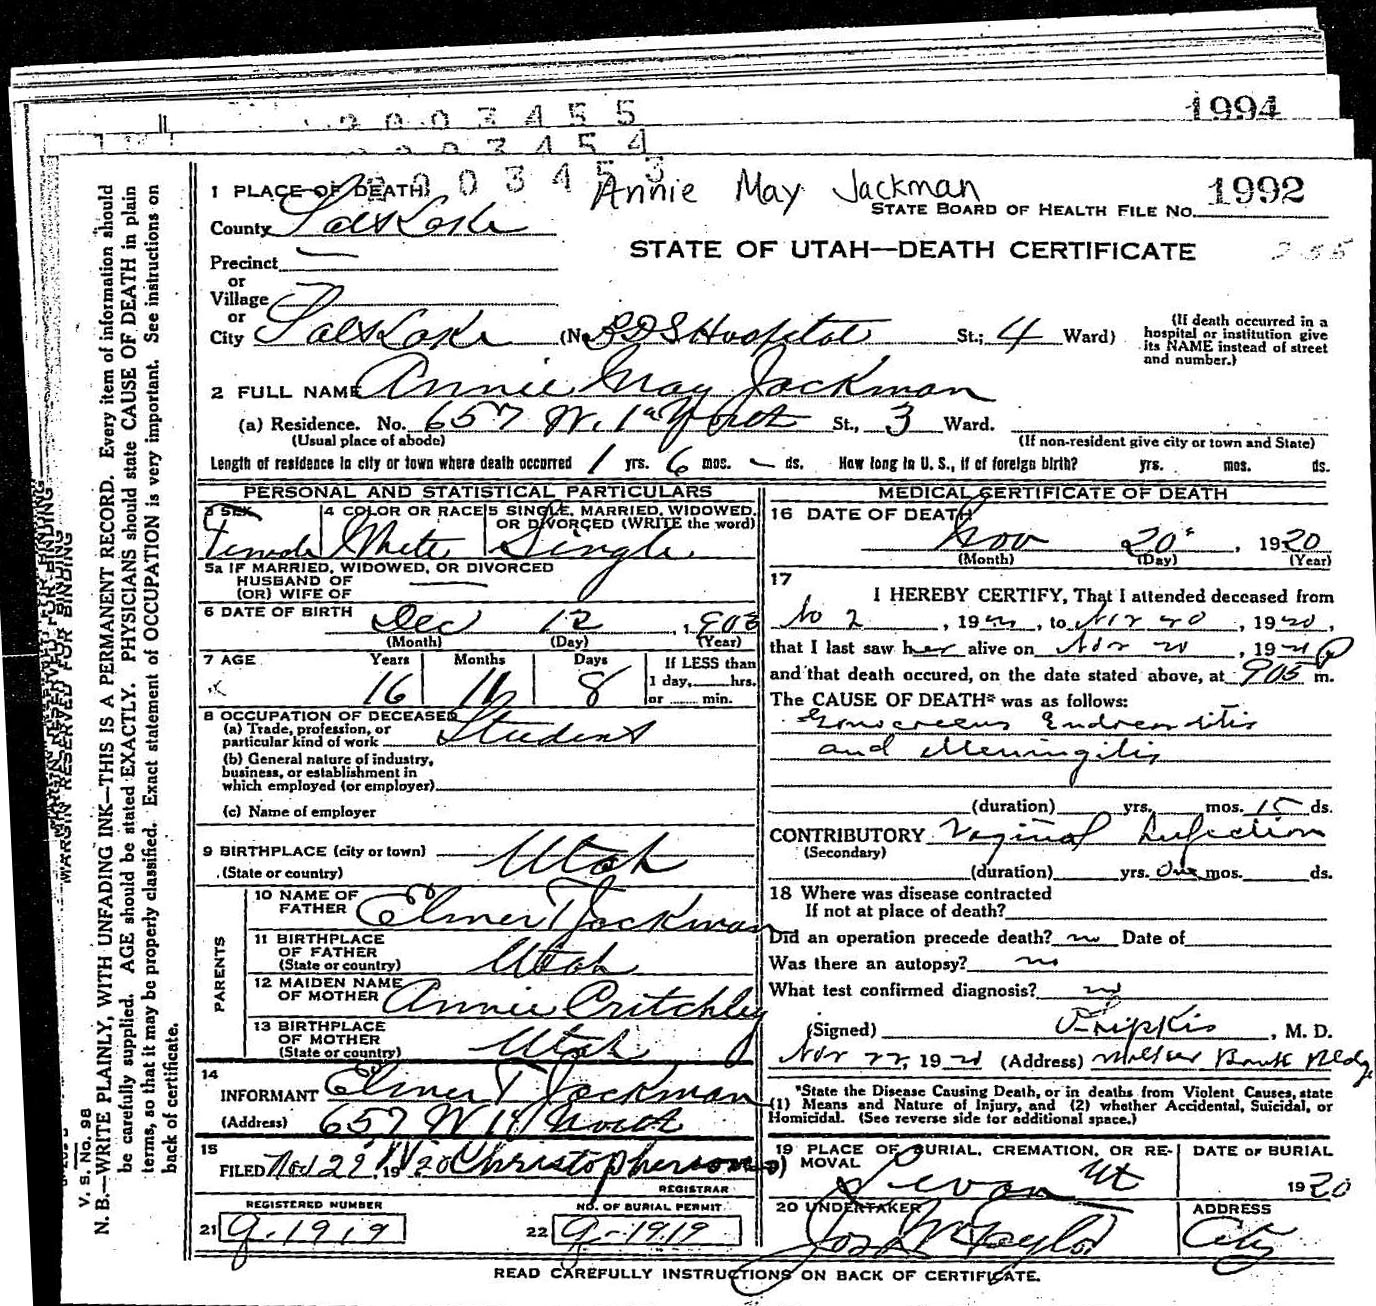 2003455
1994
003454
003453
Annie May Jackman
1992
1 PLACE OF DEATH
STATE BOARD OF HEALTH FILE No.
County Salt Lake
STATE OF UTAH—DEATH CERTIFICATE
Precinct
or
Village
or
City Salt Lake (No. LDS Hospital St.; 4 Ward)
(If death occurred in a hospital or institution give its NAME instead of street and number.)
2 FULL NAME Annie May Jackman
(a) Residence. No. 657 W. 1st North St., 3 Ward.
(Usual place of abode)
(If non-resident give city or town and State)
Length of residence in city or town where death occurred 1 yrs. 6 mos. – ds. How long in U. S., if of foreign birth? yrs. mos. ds.
PERSONAL AND STATISTICAL PARTICULARS
3 SEX Female
4 COLOR OR RACE White
5 SINGLE, MARRIED, WIDOWED, OR DIVORCED (WRITE the word) Single
5a IF MARRIED, WIDOWED, OR DIVORCED
HUSBAND OF
(OR) WIFE OF
6 DATE OF BIRTH Dec 12, 1903
(Month) (Day) (Year)
7 AGE Years Months Days If LESS than
16 11 8 1 day, hrs.
or min.
8 OCCUPATION OF DECEASED
(a) Trade, profession, or
particular kind of work Student
(b) General nature of industry,
business, or establishment in
which employed (or employer)
(c) Name of employer
9 BIRTHPLACE (city or town)
(State or country) Utah
PARENTS
10 NAME OF FATHER Elmer T Jackman
11 BIRTHPLACE OF FATHER
(State or country) Utah
12 MAIDEN NAME OF MOTHER Annie Critchley
13 BIRTHPLACE OF MOTHER
(State or country) Utah
14
INFORMANT Elmer T Jackman
(Address) 657 W 1st North
15
FILED Nov 22, 1920 Christopherson
REGISTRAR
REGISTERED NUMBER
21 9-1919
NO. OF BURIAL PERMIT
22 9-1919
MEDICAL CERTIFICATE OF DEATH
16 DATE OF DEATH
Nov 20, 1920
(Month) (Day) (Year)
17
I HEREBY CERTIFY, That I attended deceased from
No 2, 1920, to Nov 20, 1920,
that I last saw her alive on Nov 20, 1920
and that death occured, on the date stated above, at 905 P m.
The CAUSE OF DEATH* was as follows:
Endocarditis
and Meningitis
(duration) yrs. mos. 15 ds.
CONTRIBUTORY Vaginal Infection
(Secondary)
(duration) yrs. One mos. ds.
18 Where was disease contracted
If not at place of death?
Did an operation precede death? no Date of
Was there an autopsy? no
What test confirmed diagnosis? no
(Signed) , M. D.
Nov 22, 1920 (Address) Walker Bank Bldg.
*State the Disease Causing Death, or in deaths from Violent Causes, state
(1) Means and Nature of Injury, and (2) whether Accidental, Suicidal, or
Homicidal. (See reverse side for additional space.)
19 PLACE OF BURIAL, CREMATION, OR RE-
MOVAL
Levan Ut
DATE OF BURIAL
1920
20 UNDERTAKER
Jos Wm Taylor
ADDRESS
City
READ CAREFULLY INSTRUCTIONS ON BACK OF CERTIFICATE.
V. S. No. 98
MARGIN RESERVED FOR BINDING
N. B.—WRITE PLAINLY, WITH UNFADING INK—THIS IS A PERMANENT RECORD. Every item of information should
be carefully supplied. AGE should be stated EXACTLY. PHYSICIANS should state CAUSE OF DEATH in plain
terms, so that it may be properly classified. Exact statement of OCCUPATION is very important. See instructions on
back of certificate.